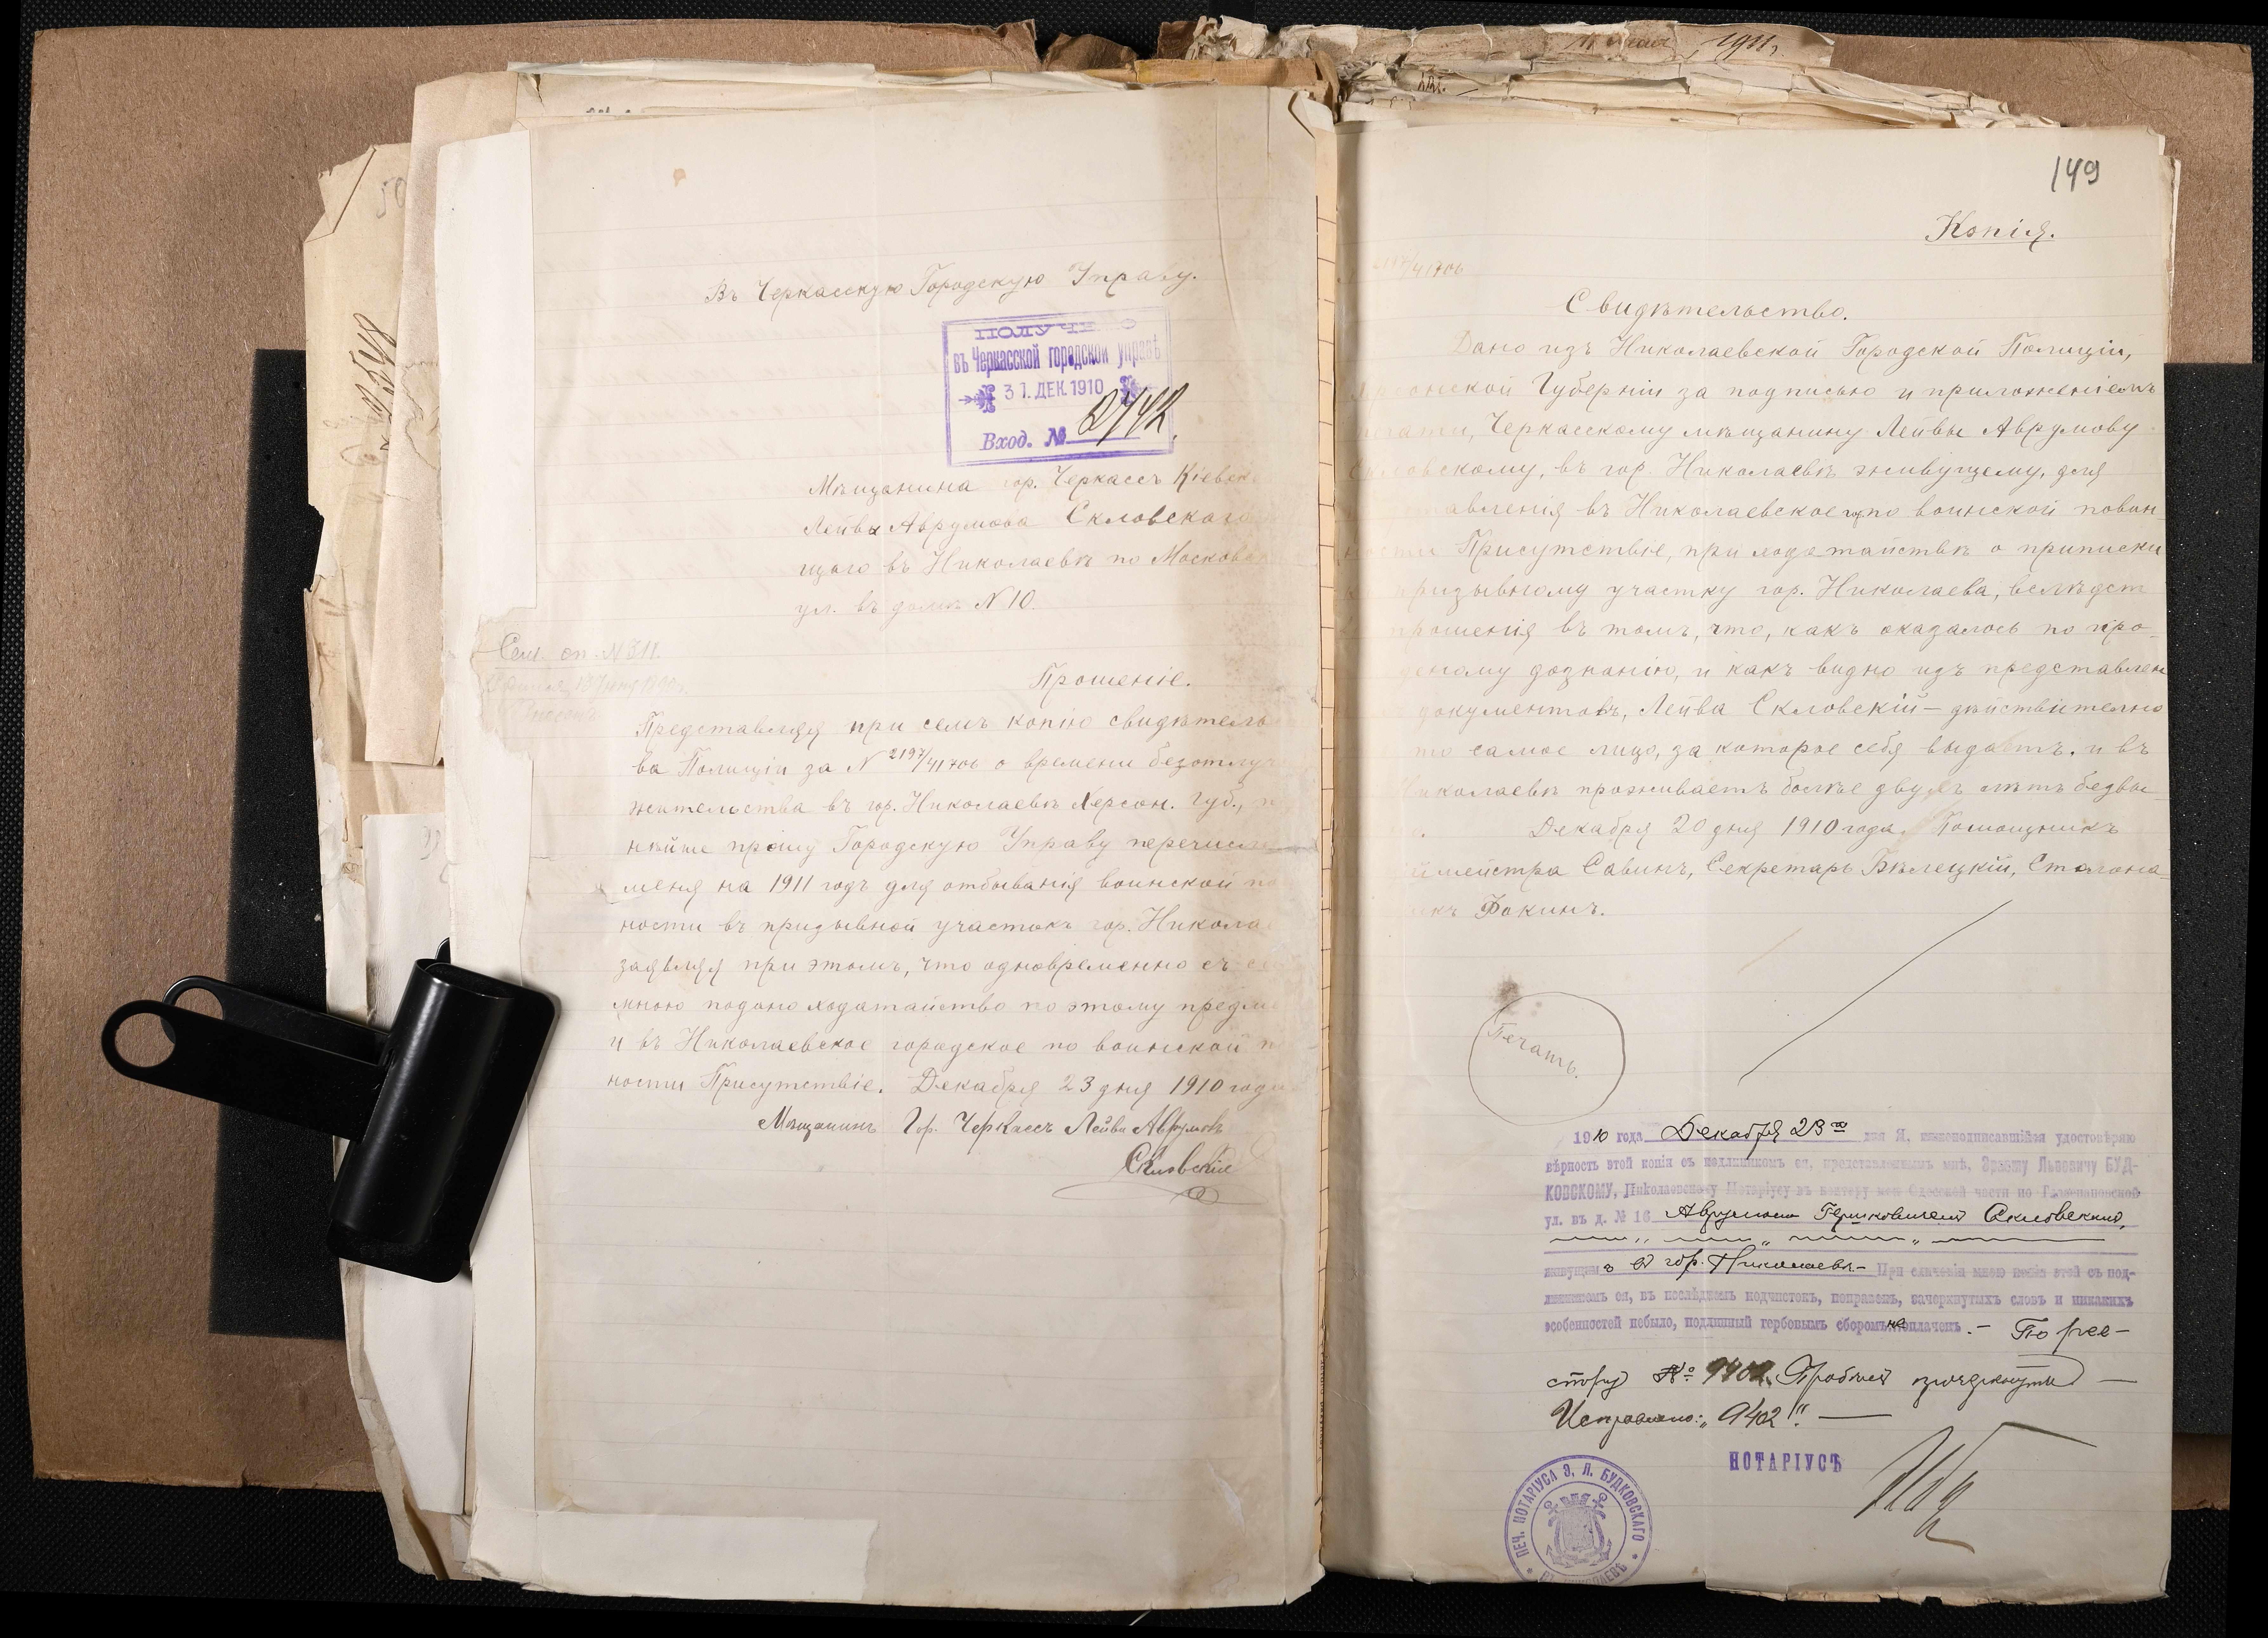 Въ Черкасскую Городскую Управу.
въ Черкасской городской управѣ
31. ДЕК. 1910
Вход. №
Мѣщанина гор. Черкассъ Кіевск
Лейвы Аврумова Скловскаго
щаго въ Николаевѣ по Московск
ул. въ домѣ N 10.
Сем. сп. N 311.
Прошеніе.
Представляя при семъ копію свидѣтель
ва Полиціи за N 2197/41706 о времени безотлуч
жительства въ гор. Николаевѣ Херсон. Губ.,
нѣйше прошу Городскую Управу перечисл
меня на 1911 годъ для отбыванія воинской по
ности въ призывной участокъ гор. Никола
заявляя при этомъ, что одновременно съ
мною подано ходатайство по этому предме
и въ Николаевское городское по воинской п
ности Присутствіе. Декабря 23 дня 1910 года
Мѣщанинъ Гор. Черкассъ Лейва Аврумовъ
Скловскій
1911
149
Копія.
2197/41706
Свидѣтельство.
Дано изъ Николаевской Городской Полиціи,
Губерніи за подписью и приложеніемъ
печати, Черкасскому мѣщанину Лейвы Аврумову
Скловскому, въ гор. Николаевѣ живущему, для
авленія въ Николаевское по воинской повин-
ности Присутствіе, при ходатайствѣ о приписки
призывному участку гор. Николаева, вслѣдст
прошенія въ томъ, что, какъ оказалось по про-
деному дознанію, и какъ видно изъ представлен
документовъ, Лейва Скловскій - дѣйствительно
то самое лицо, за которое себя выдаетъ. и въ
Николаевѣ проживаетъ болѣе двухъ лѣтъ безвы-
Декабря 20 дня 1910 года. Помощникъ
ймейстра Савинъ, Секретарь Бѣлецкій, Столона-
икъ Фокинъ.
Печать.
1910 года Декабря 23го дня Я, нижеподписавшійся удостовѣряю
вѣрность этой копіи съ подлинникомъ ея, представленнымъ мнѣ, Эразму Львовичу БУД-
КОВСКОМУ, Николаевскому Нотаріусу въ контору мою Одесской части по
ул. въ д. № 16 Аврумомъ Гершковичемъ Скловскимъ,
живущимъ въ гор. Николаевѣ.- При сличеніи мною копіи этой съ под-
линникомъ ея, въ послѣднемъ подчистокъ, поправокъ, зачеркнутыхъ словъ и никакихъ
особенностей небыло, подлинный гербовымъ сборомъ не оплаченъ.- По рее-
стру № 9402. Пробѣлъ прочеркнутъ —
Исправлено: „9402". —
НОТАРІУСЪ
ПЕЧ. НОТАРІУСА Э. Л. БУДКОВСКАГО